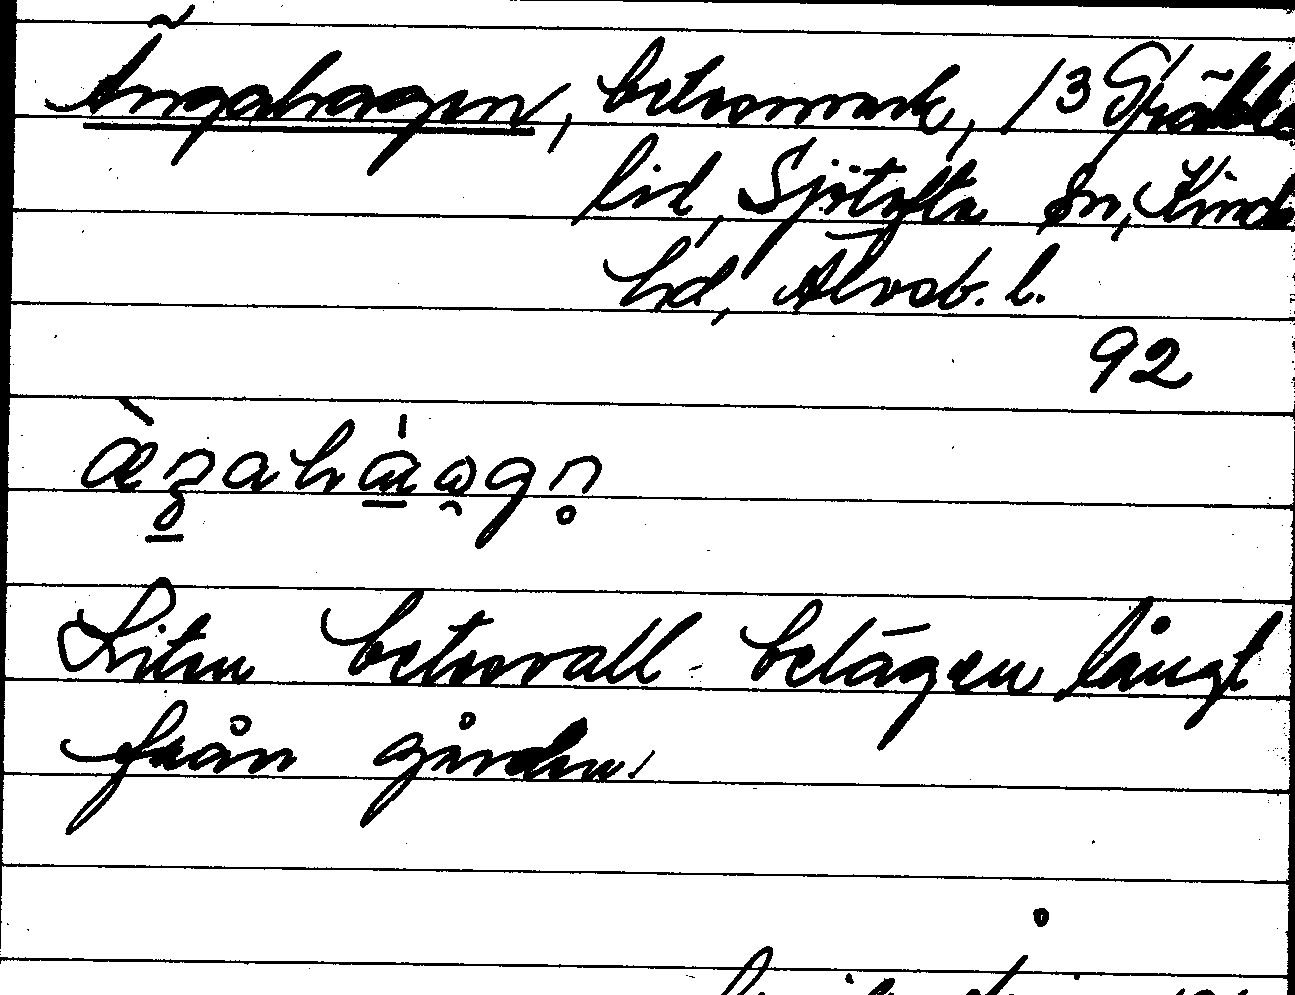 Ängahagen, betesmark, 13 Gräbba
lid, Sjötofta sn, Kinds
hd, Älvsb. l.
92
Liten betesvall belägen långt
från gården.